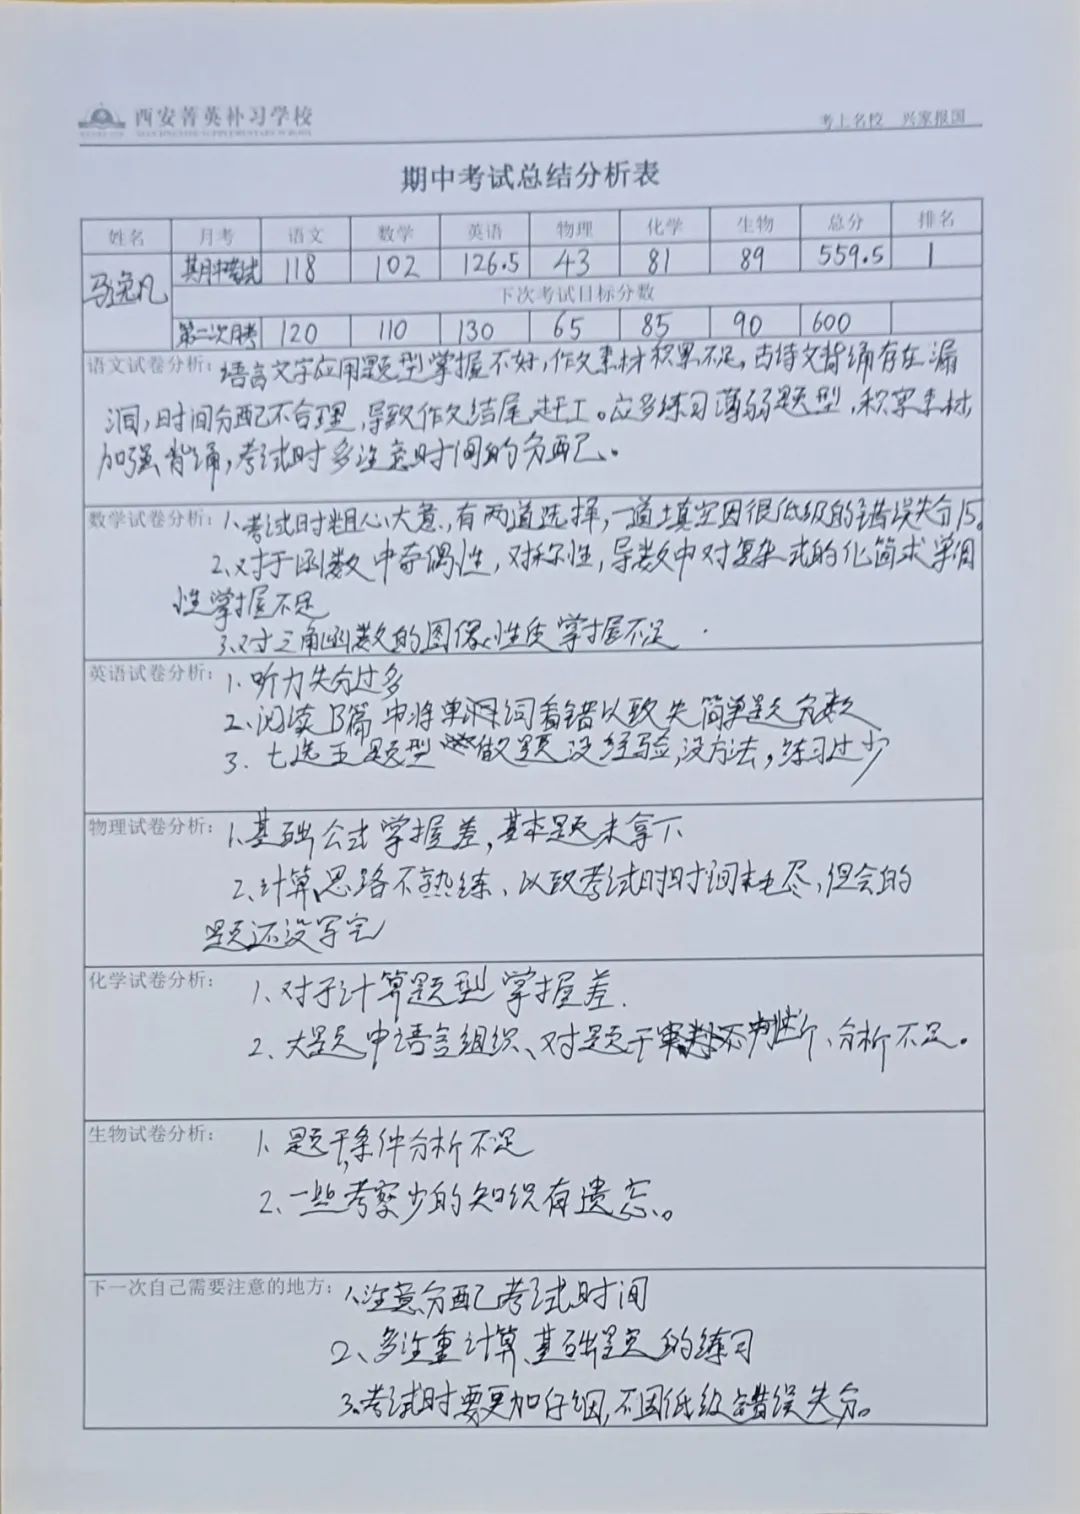 西安菁英补习学校
考上名校 兴家报国
期中考试总结分析表
姓名 月考 语文 数学 英语 物理 化学 生物 总分 排名
马逸凡 期中考试 118 102 126.5 43 81 89 559.5 1
下次考试目标分数
第二次月考 120 110 130 65 85 90 600
语文试卷分析：语言文字应用题型掌握不好，作文素材积累不足，古诗文背诵存在漏
洞，时间分配不合理，导致作文结尾赶工。应多练习薄弱题型，积累素材，
加强背诵，考试时多注意时间的分配。
数学试卷分析：1、考试时粗心大意，有两道选择，一道填空因很低级的错误失分15。
2、对于函数中奇偶性，对称性，导数中对复杂式的化简求单调
性掌握不足
3、对三角函数的图像、性质掌握不足．
英语试卷分析：1、听力失分过多
2、阅读B篇中将单词看错以致失简单题分数
3、七选五题型做题没经验，没方法，练习过少
物理试卷分析：1、基础公式掌握差，基本题未拿下
2、计算、思路不熟练、以致考试时时间耗尽，但会的
题还没写完
化学试卷分析：1、对于计算题型掌握差．
2、大题中语言组织、对题干判断、分析不足。
生物试卷分析：1、题干条件分析不足
2、一些考察少的知识有遗忘。
下一次自己需要注意的地方：1、注意分配考试时间
2、多注重计算、基础题的练习
3、考试时要更加仔细，不因低级错误失分。